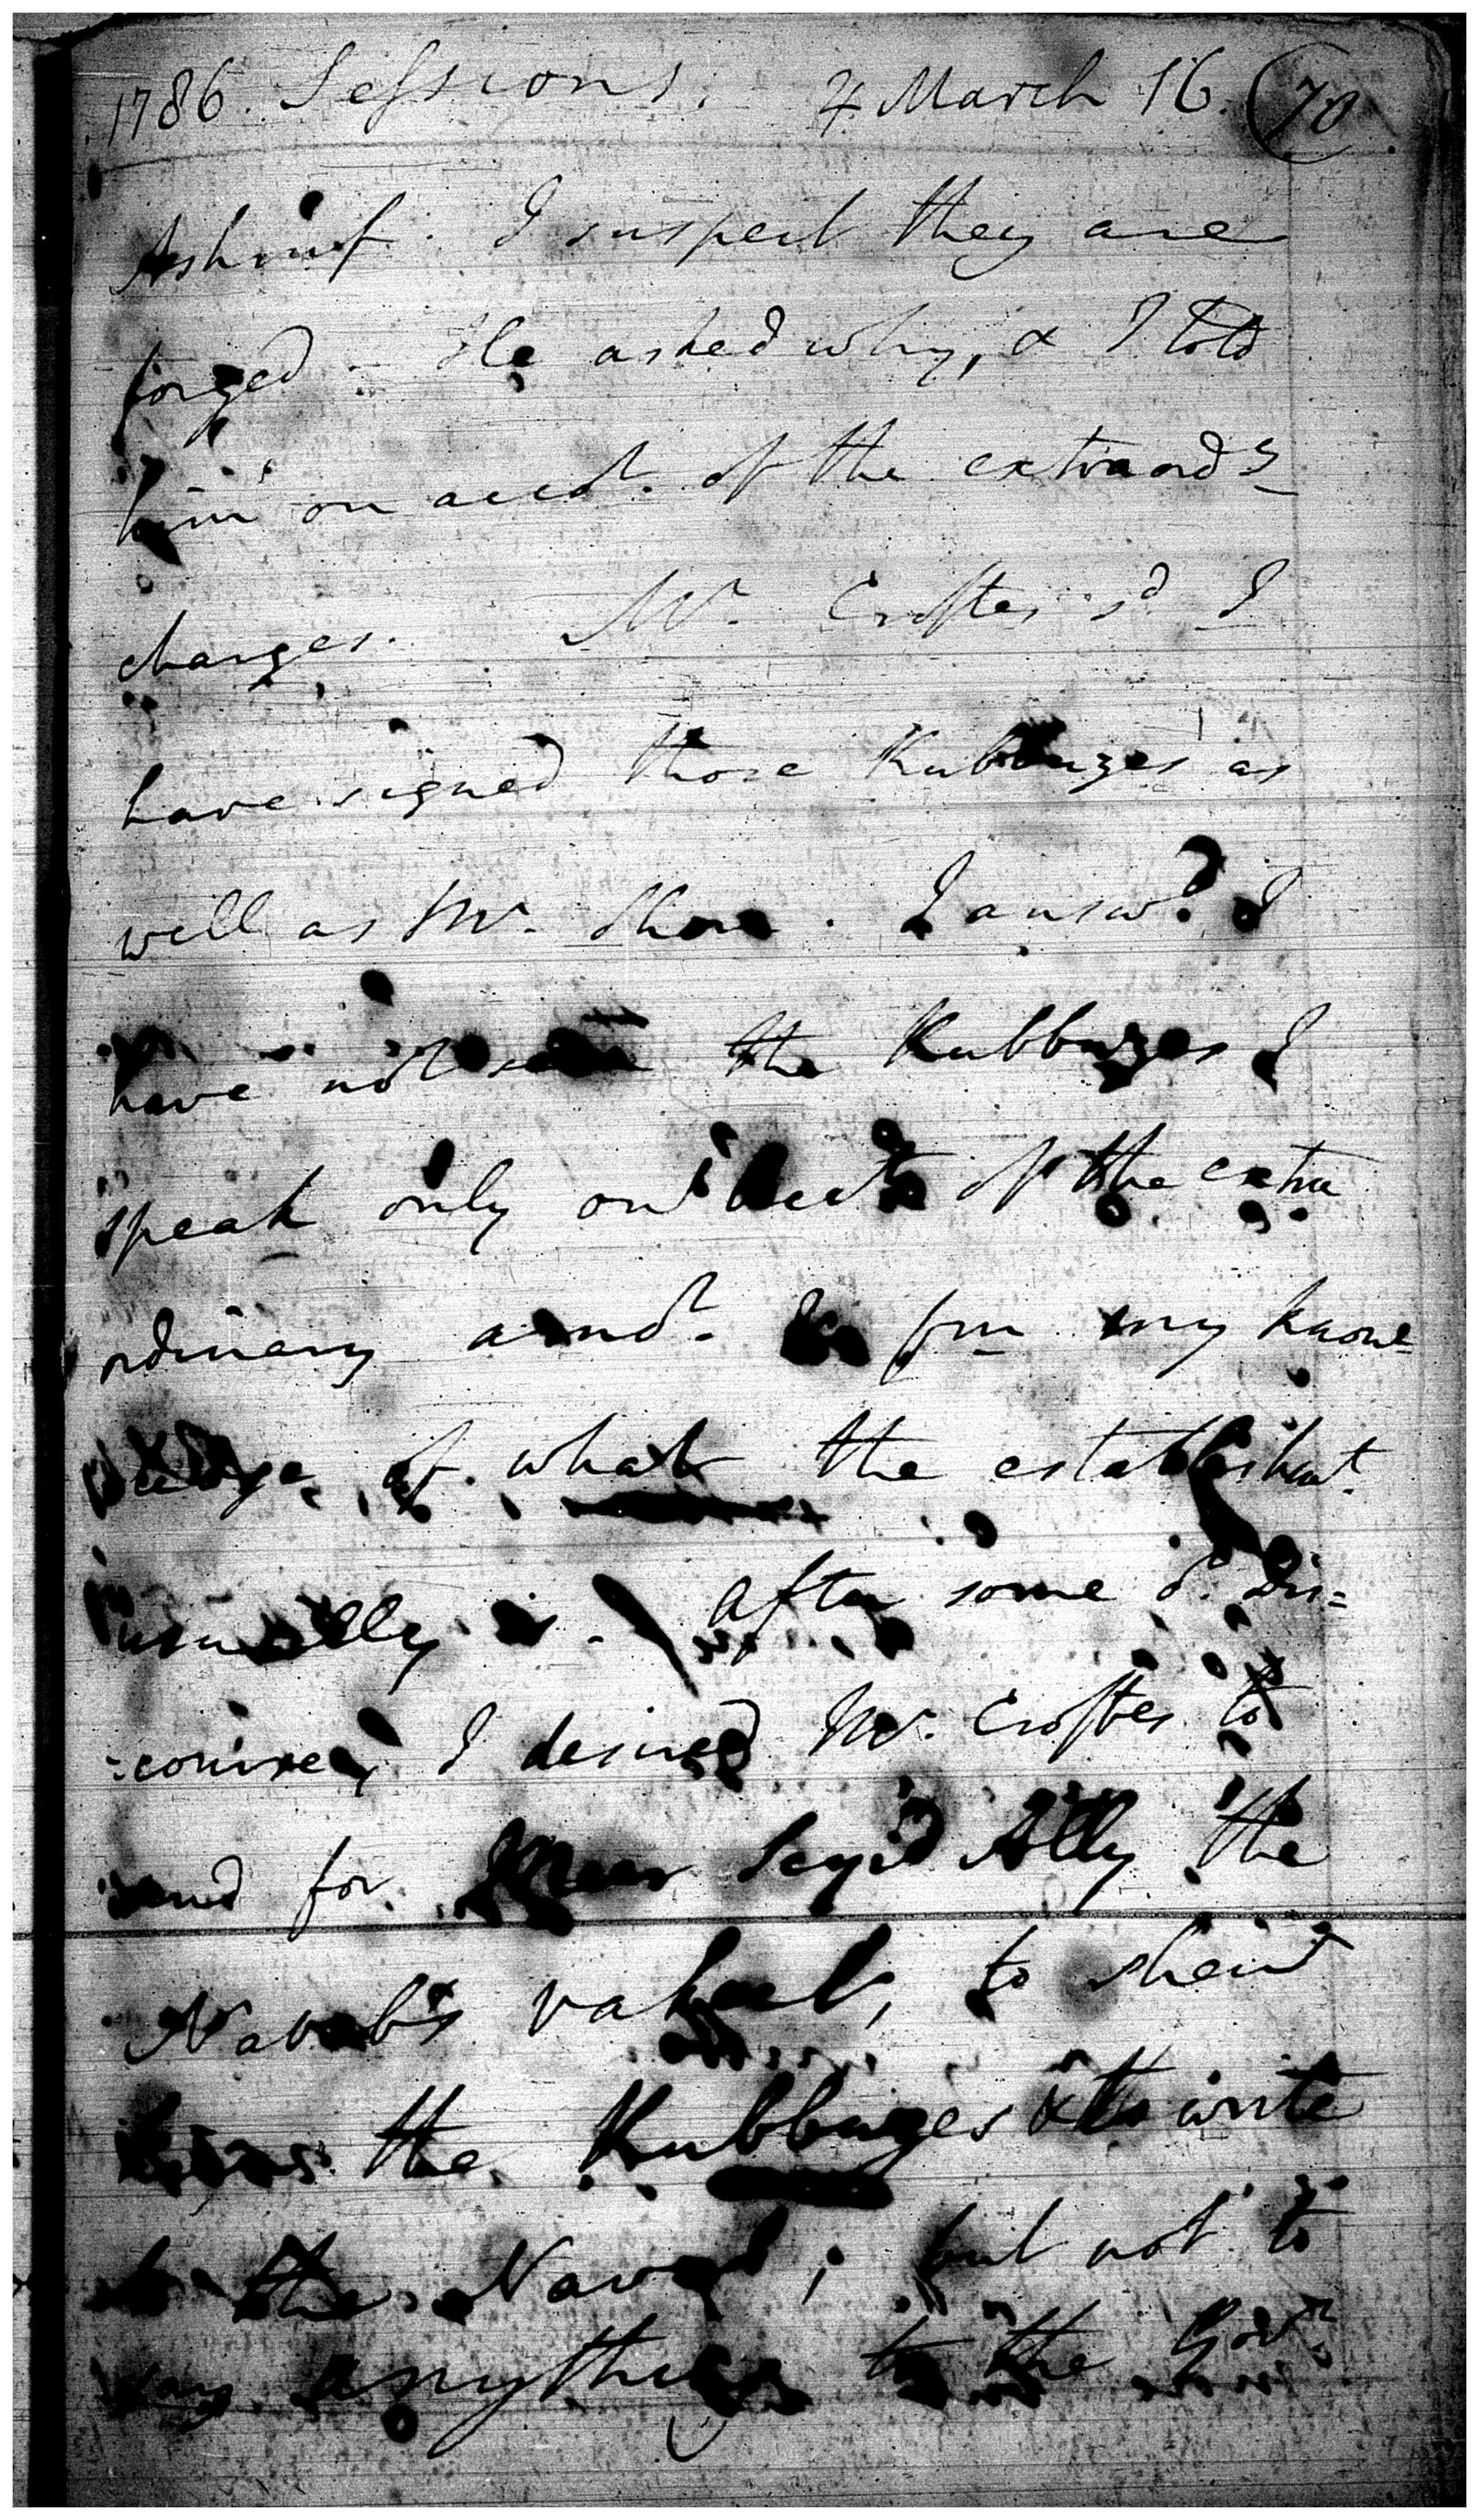 1786. Sessions. 4 March 16. (70)
Ashruf. I suspect they are
forged - He asked why, & I told
him on acct. of the extraordy
charges. Mr. Croftes sd I
have signed those Kubbuzes as
well as Mr. Shore. I answd. I
have not seen the Kubbuzes I
speak only on acct of the extra
ordinary amot. & fm my know=
ledge of what the establishmt.
usually is. After some dis=
=course, I desired Mr. Croftes to
send for Meer Seyid Ally the
Navab's vakeel, to shew
him the Kubbuzes & to write
to the Navab; but not to
say anything to the Govr.